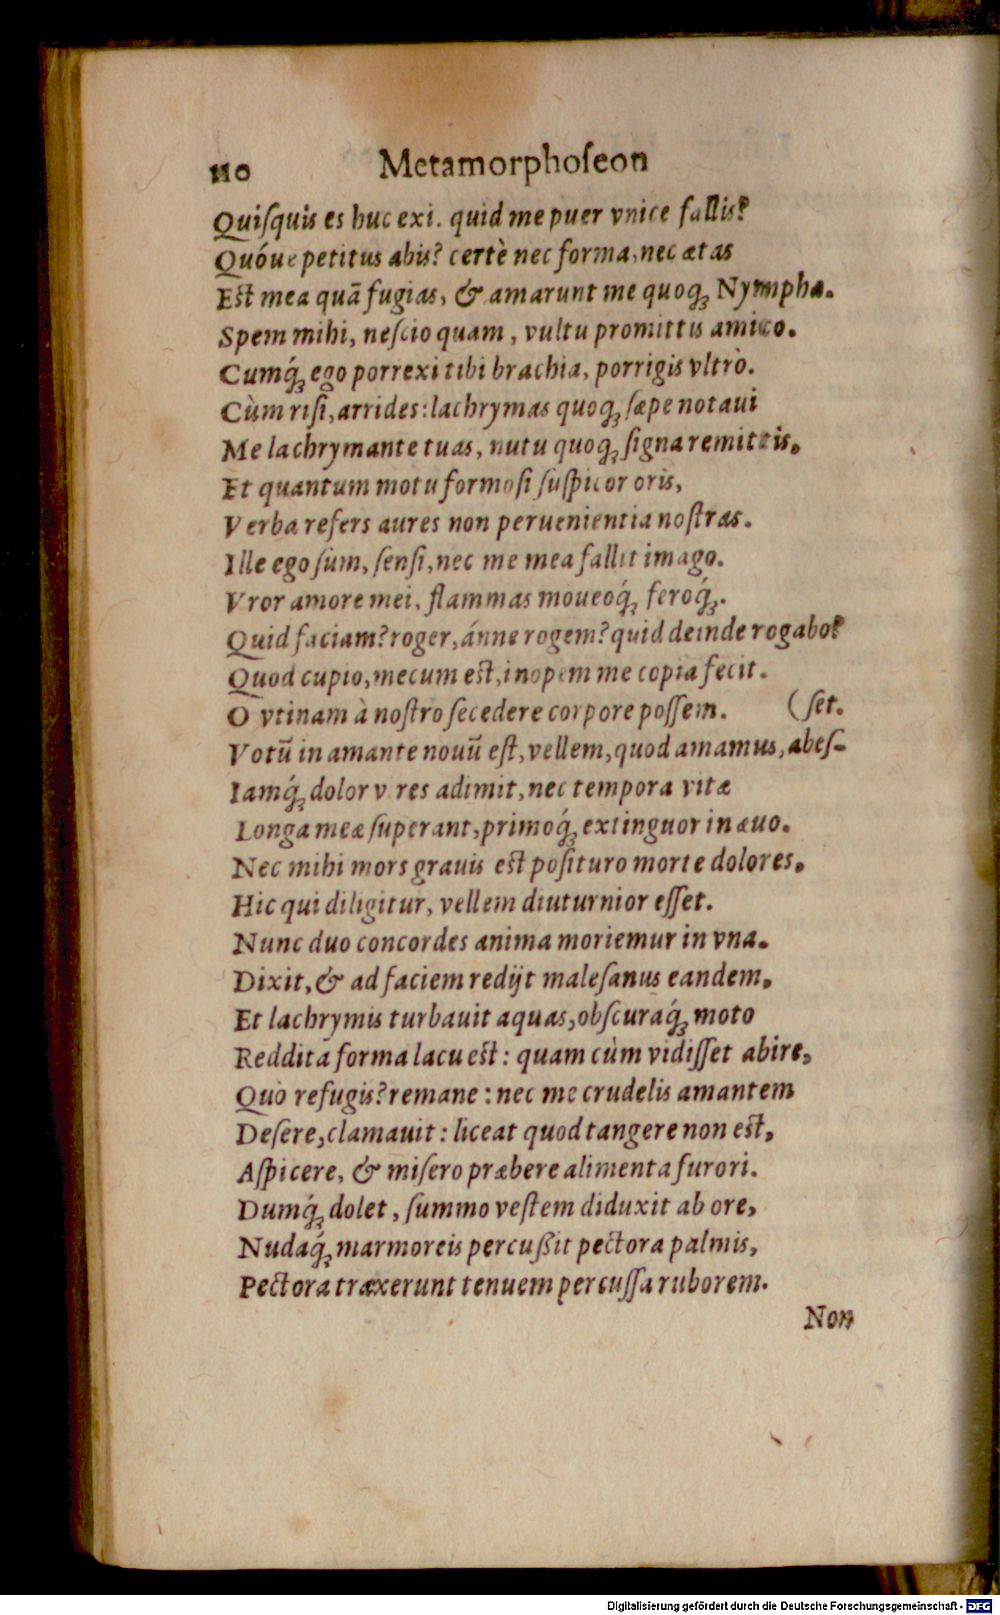 110 Metamorphoſeon
Quiſquis es huc exi. quid me puer vnice fallis?
Quóue petitus abis? certè nec forma, nec ætas
Eſt mea quã fugias, & amarunt me quoq́ꝫ Nymphæ.
Spem mihi, neſcio quam, vultu promittis amico.
Cumq́ꝫ ego porrexi tibi brachia, porrigis vltrò.
Cùm riſi, arrides: lachrymas quoqꝫ ſæpe notaui
Me lachrymante tuas, nutu quoqꝫ ſigna remittis.
Et quantum motu formoſi ſuſpicor oris,
Verba refers aures non peruenientia noſtras.
Ille ego ſum, ſenſi, nec me mea fallit imago.
Vror amore mei, flammas moueoq́ꝫ feroq́ꝫ.
Quid faciam? roger, ánne rogem? quid deinde rogabo?
Quod cupio, mecum eſt, inopem me copia fecit.
O vtinam à noſtro ſecedere corpore poſſem. (ſet.
Votũ in amante nouũ eſt, vellem, quod amamus, abeſ-
Iamq́ꝫ dolor v res adimit, nec tempora vitæ
Longa meæ ſuperant, primoq́ꝫ extinguor in æuo.
Nec mihi mors grauis eſt poſituro morte dolores.
Hic qui diligitur, vellem diuturnior eſſet.
Nunc duo concordes anima moriemur in vna.
Dixit, & ad faciem redijt maleſanus eandem,
Et lachrymis turbauit aquas, obſcuraq́ꝫ moto
Reddita forma lacu eſt: quam cùm vidiſſet abire,
Quò refugis? remane: nec me crudelis amantem
Deſere, clamauit: liceat quod tangere non eſt,
Aſpicere, & miſero præbere alimenta furori.
Dumq́ꝫ dolet, ſummo veſtem diduxit ab ore,
Nudaq́ꝫ marmoreis percußit pectora palmis,
Pectora traxerunt tenuem percuſſa ruborem.
Non
Digitalisierung gefördert durch die Deutsche Forschungsgemeinschaft - DFG